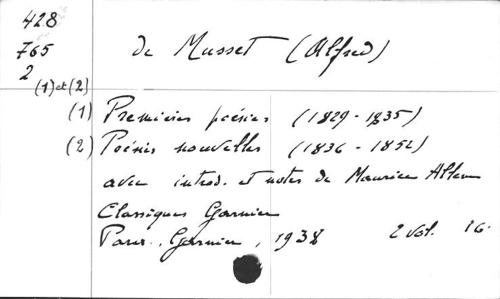 428
765
2
(1) et (2)
de Musset (Alfred)
(1) Premières poésies (1829-1835)
(2) Poésies nouvelles (1836-1852)
avec introd. et notes de Maurice Allem
Classiques Garnier
Paris, Garnier, 1938 2 vol. 16.